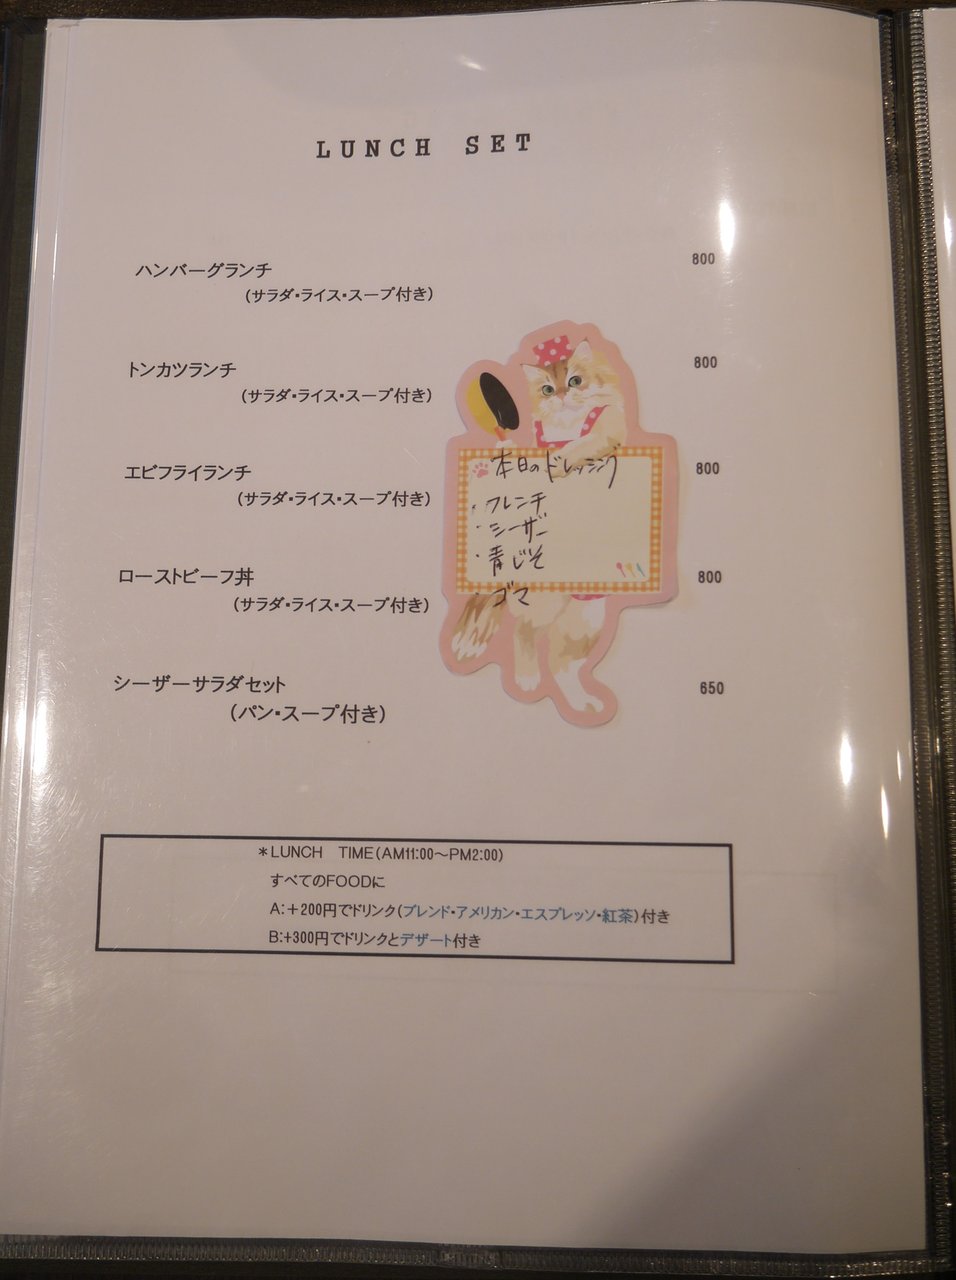 LUNCH SET
ハンバーグランチ 800
(サラダ・ライス・スープ付き)
トンカツランチ 800
(サラダ・ライス・スープ付き)
エビフライランチ 800
(サラダ・ライス・スープ付き)
ローストビーフ丼 800
(サラダ・ライス・スープ付き)
シーザーサラダセット 650
(パン・スープ付き)
本日のドレッシング
・フレンチ
・シーザー
・青じそ
・ゴマ
＊LUNCH TIME(AM11:00～PM2:00)
すべてのFOODに
A:＋200円でドリンク(ブレンド・アメリカン・エスプレッソ・紅茶)付き
B:+300円でドリンクとデザート付き